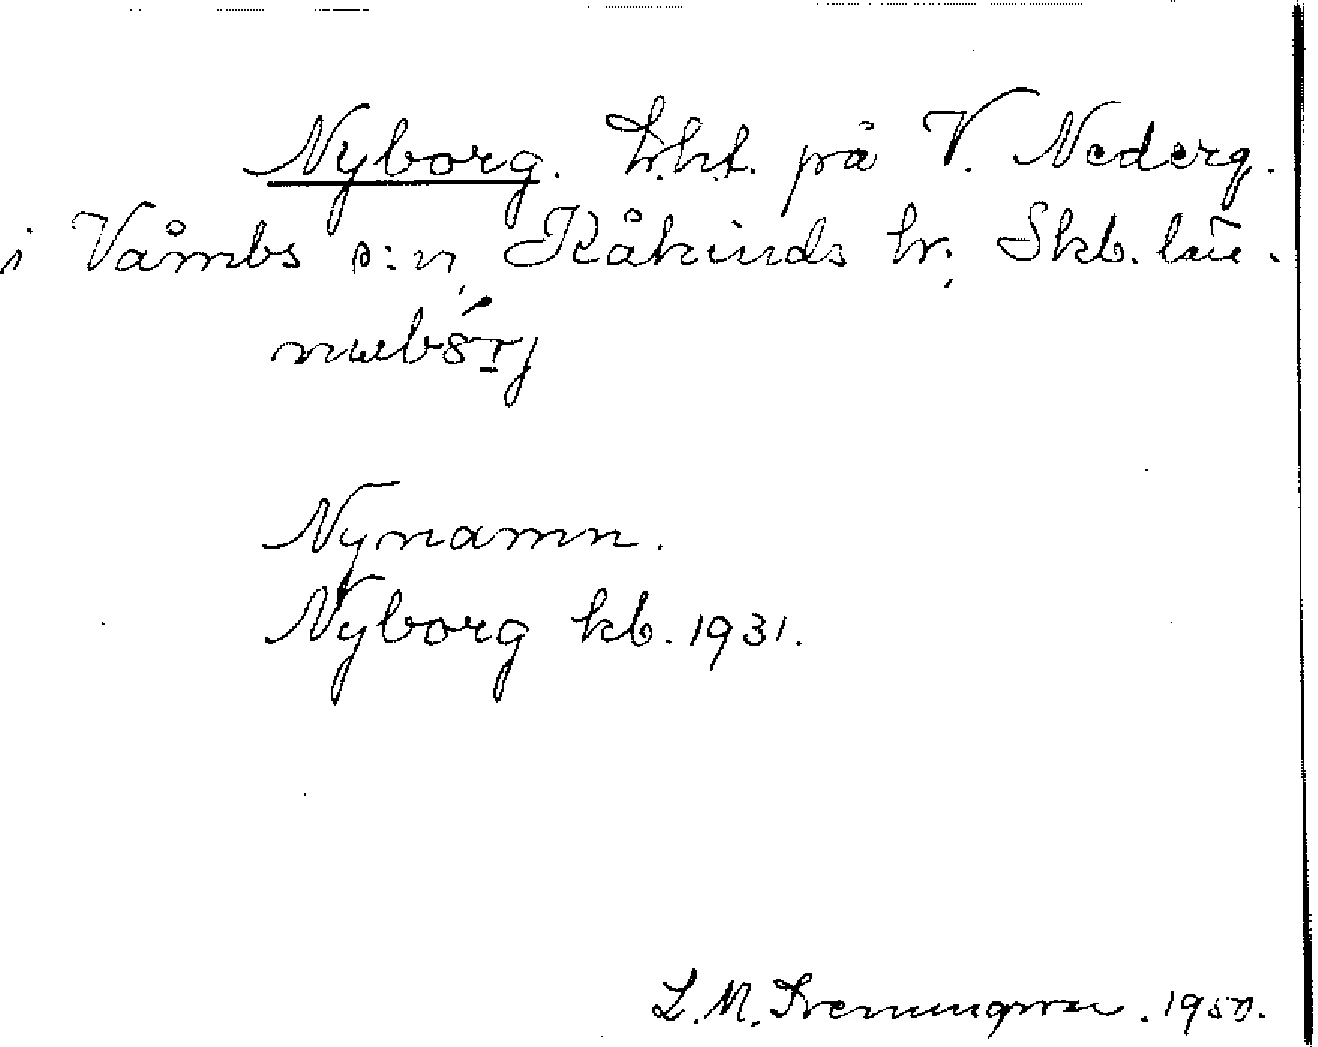 Nyborg. Lht. på V. Nederg.
i Våmbs s:n, Kåkinds hr, Skb. län.
Nynamn.
Nyborg kb. 1931.
L. M. 1950.